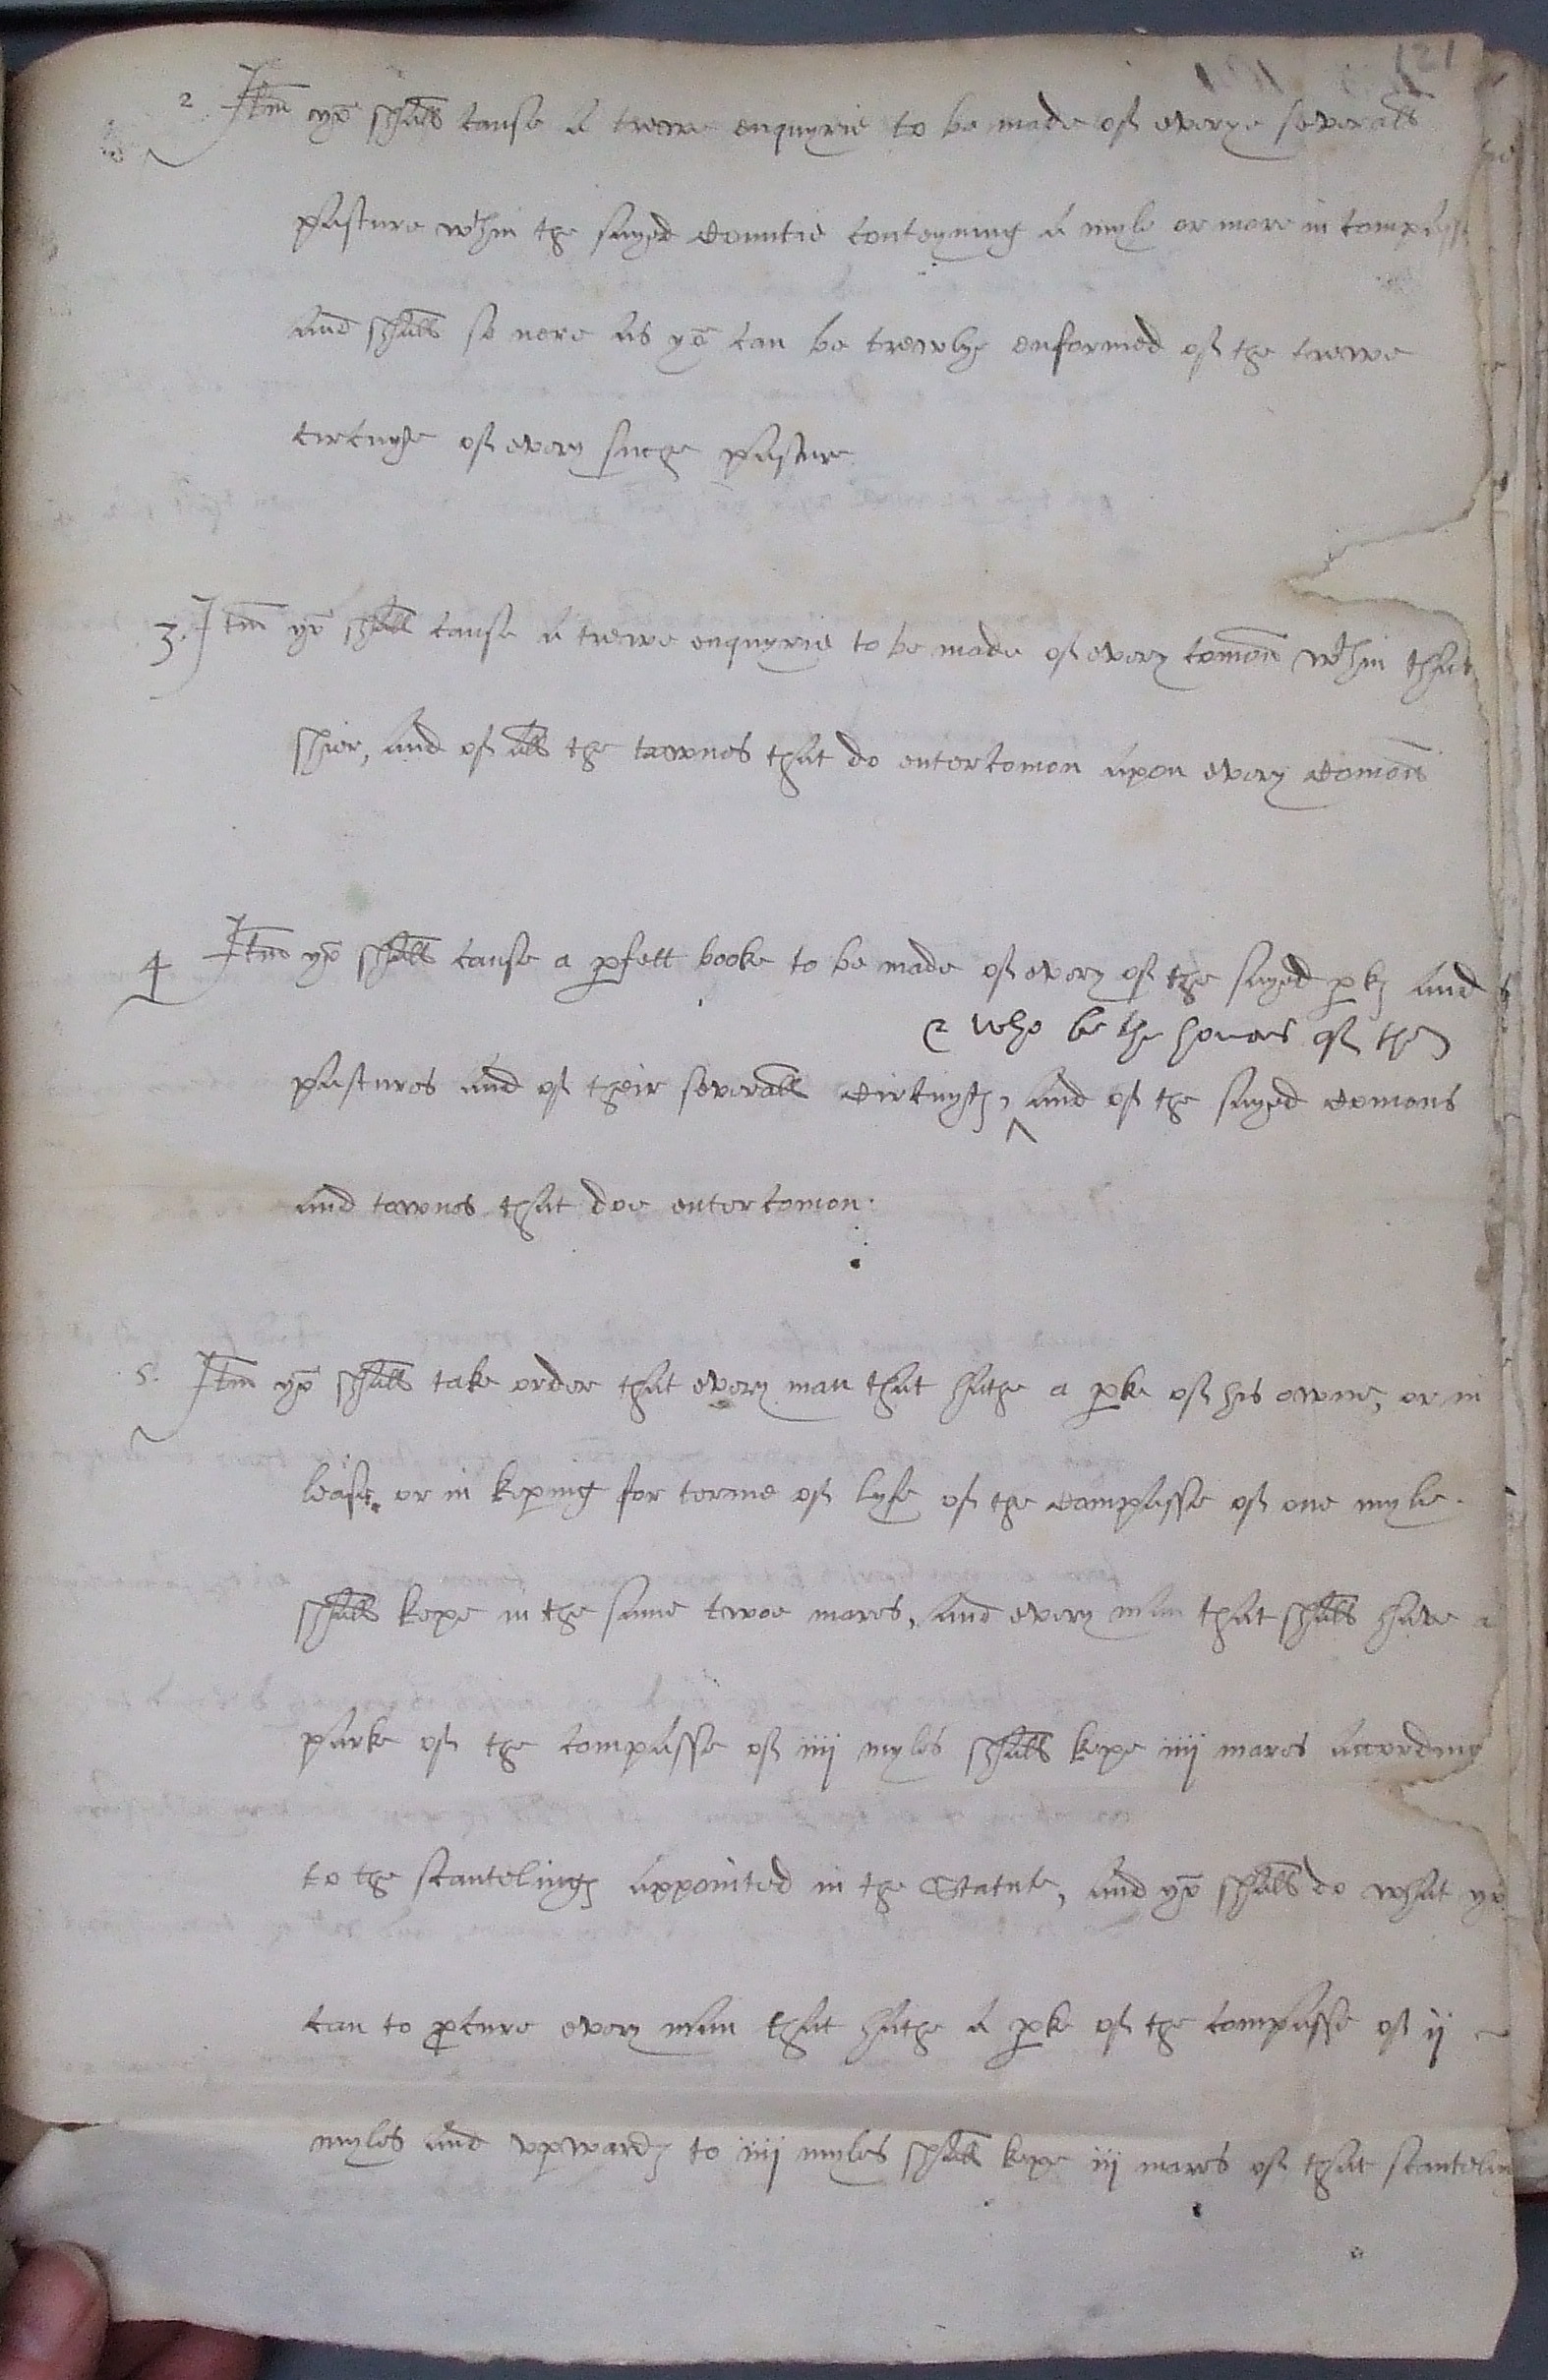 121
2 Itm ye shall cause a trewe enquyrie to be made of everye severall
pasture wthin the sayed countie conteyning a myle or more in compasse
and shall so nere as ye can be trewlye enformed of the trewe
circuyte of every suche pasture
3. Itm ye shall cause a trewe enquyrie to be made of every comon wthin that
shier, and of all the townes that do entercomon upon every comons
4 Itm ye shall cause a pfett booke to be made of every of the sayed pkes and
& who be the honers of the
pastures and of their severall circuytes, ^ and of the sayed comons
and townes that doe entercomon.
5. Itm ye shall take order that every man that hathe a pke of his owne, or in
lease, or in keping for terme of lyfe of the compasse of one myle.
shall kepe in the same twoe mares, and every man that shall have a
parke of the compasse of iiij myles shall kepe iiij mares according
to the scantelinges appointed in the Statute, and ye shall do what ye
can to pcure every man that hathe a pke of the compasse of ij
myles and vpwardes to iiij myles shall kepe iij mares of that scanteling